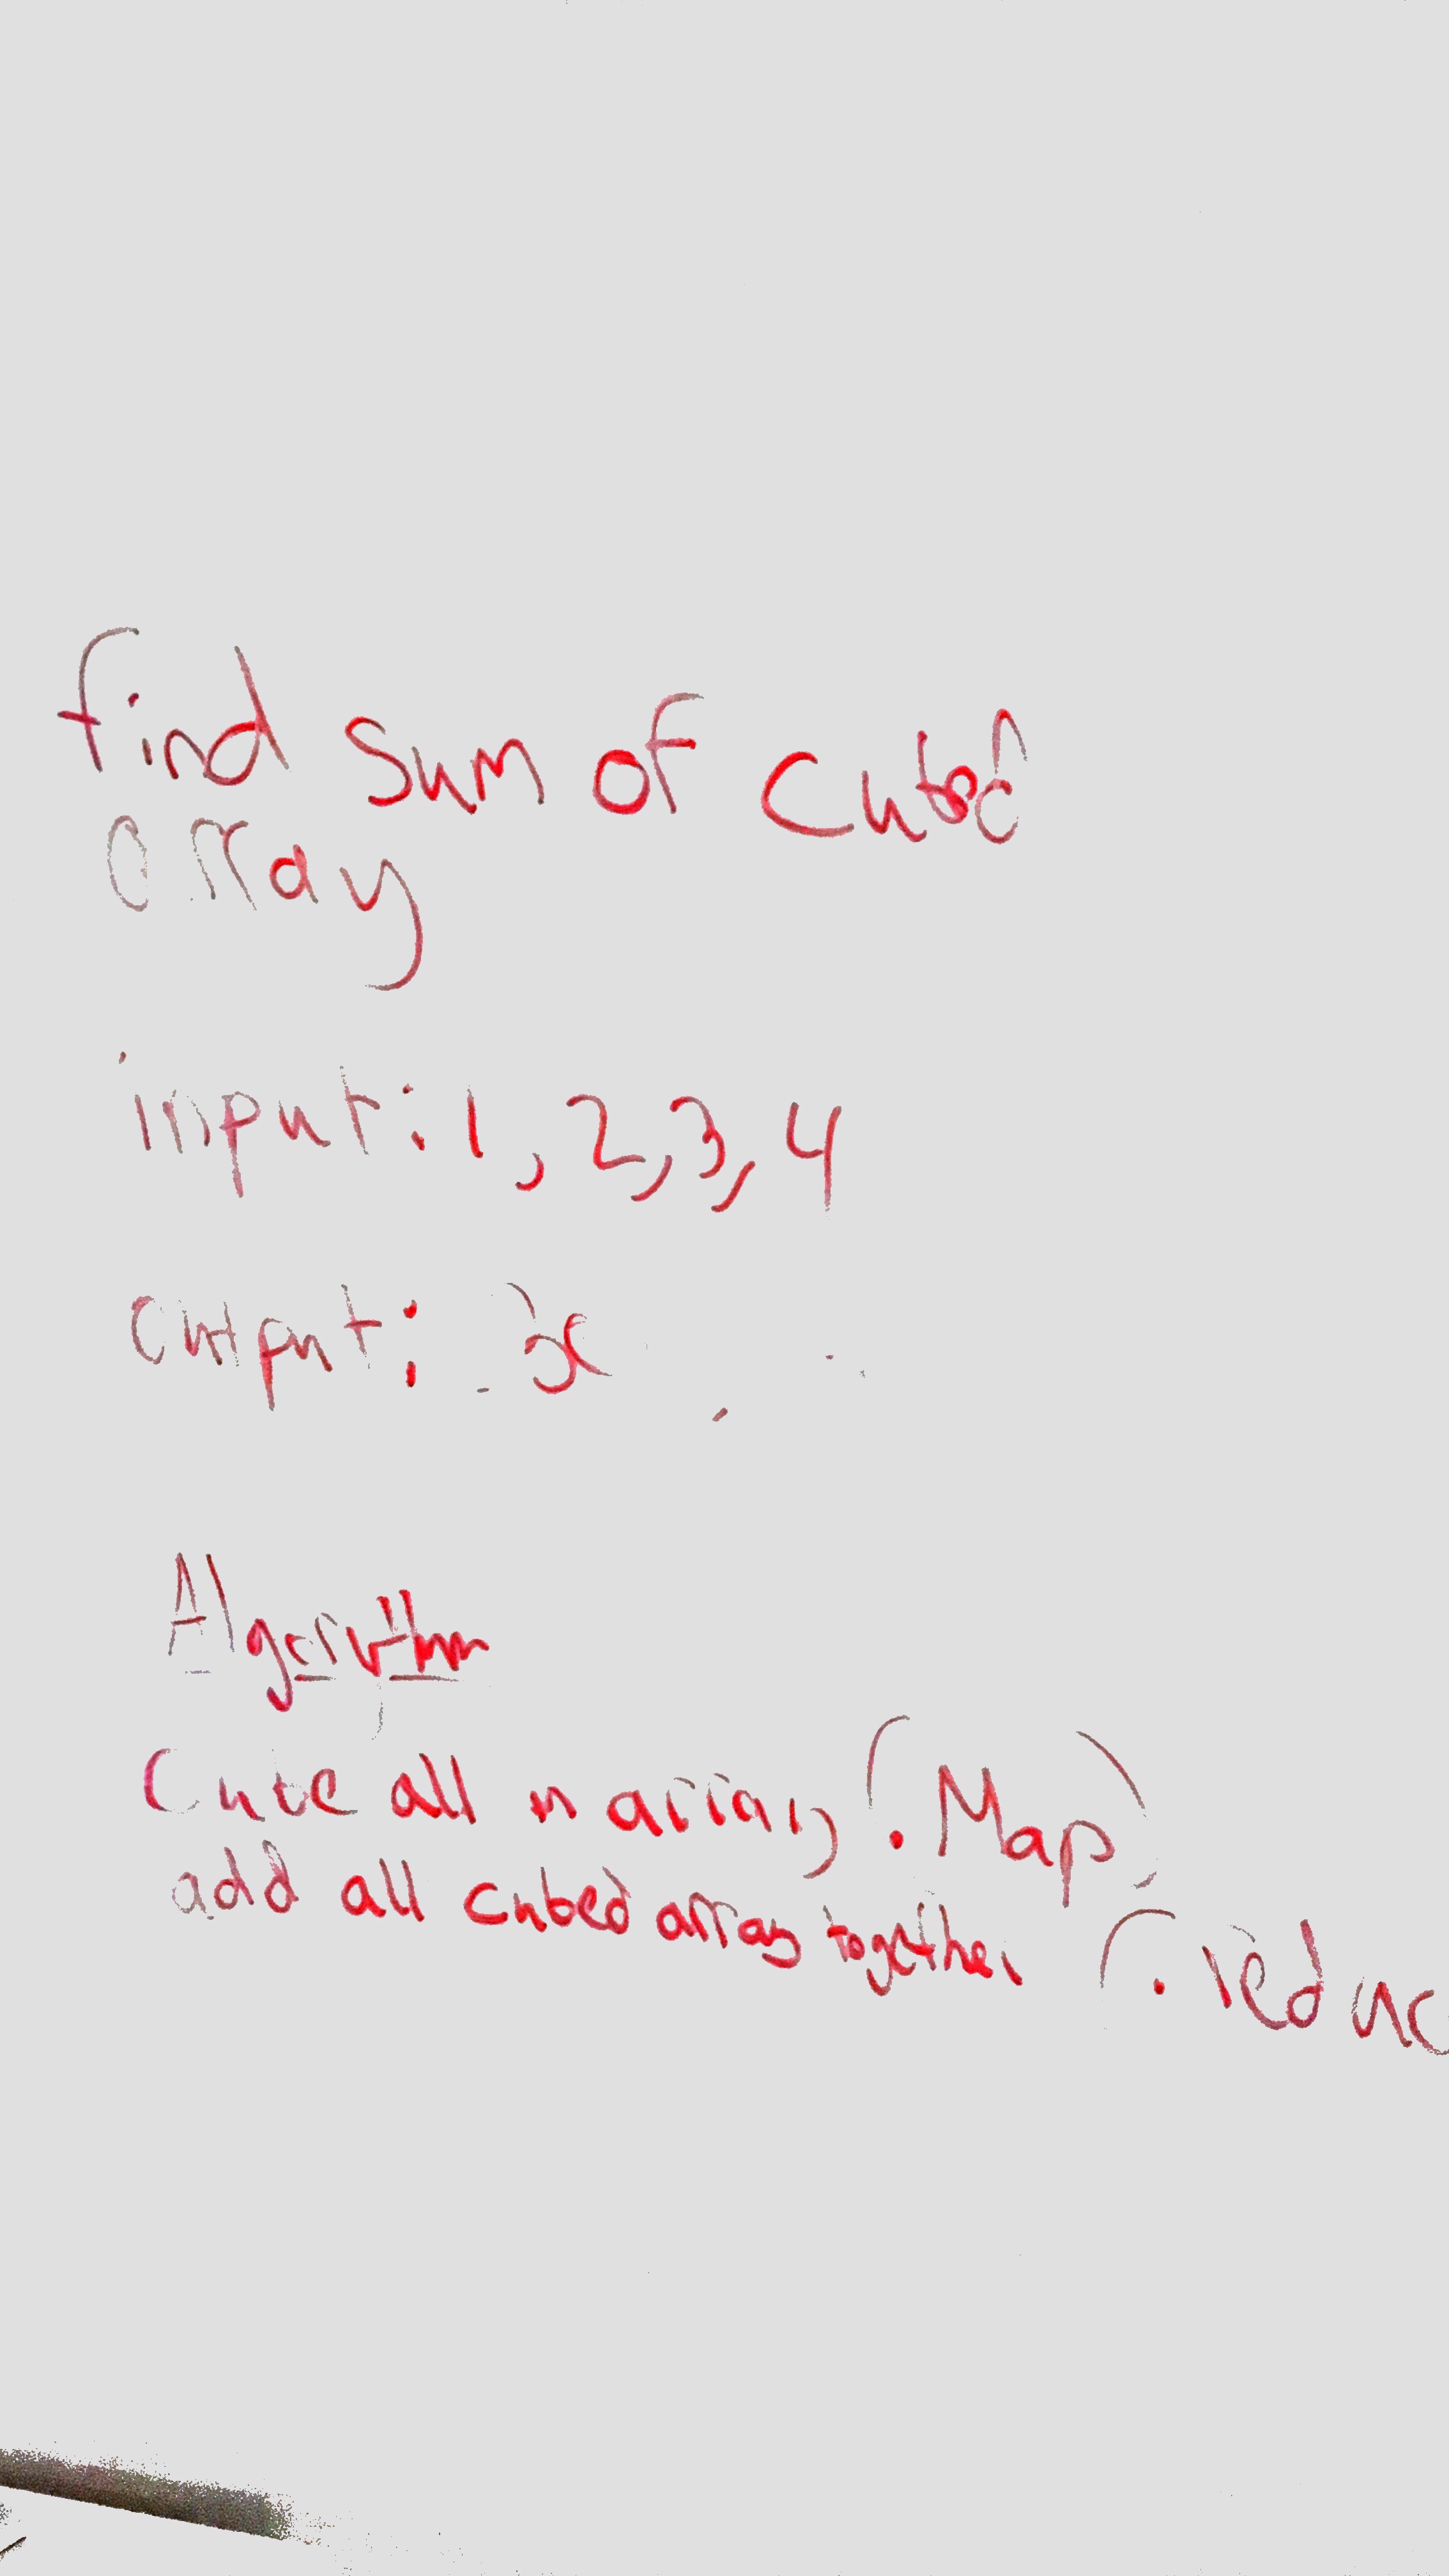 find sum of cubed
array
input: 1, 2, 3, 4
output: x
Algorithm
Cube all in array (.Map)
add all cubed array together (.reduc